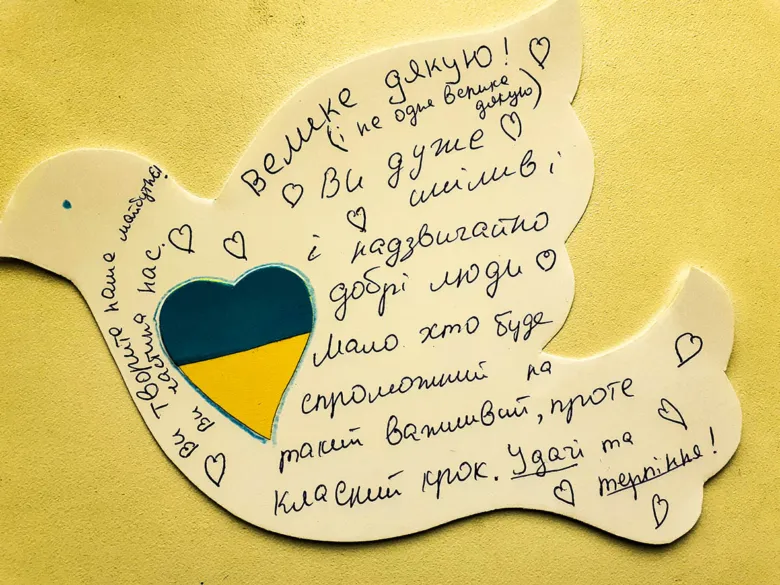 Велике дякую!
(і не одне велике
дякую)
Ви дуже
сміливі
і надзвичайно
добрі люди
Мало хто буде
спроможний на
такий важливий, проте
класний крок. Удачі та
терпіння!
Ви творите наше майбутнє!
Ви частина нас.